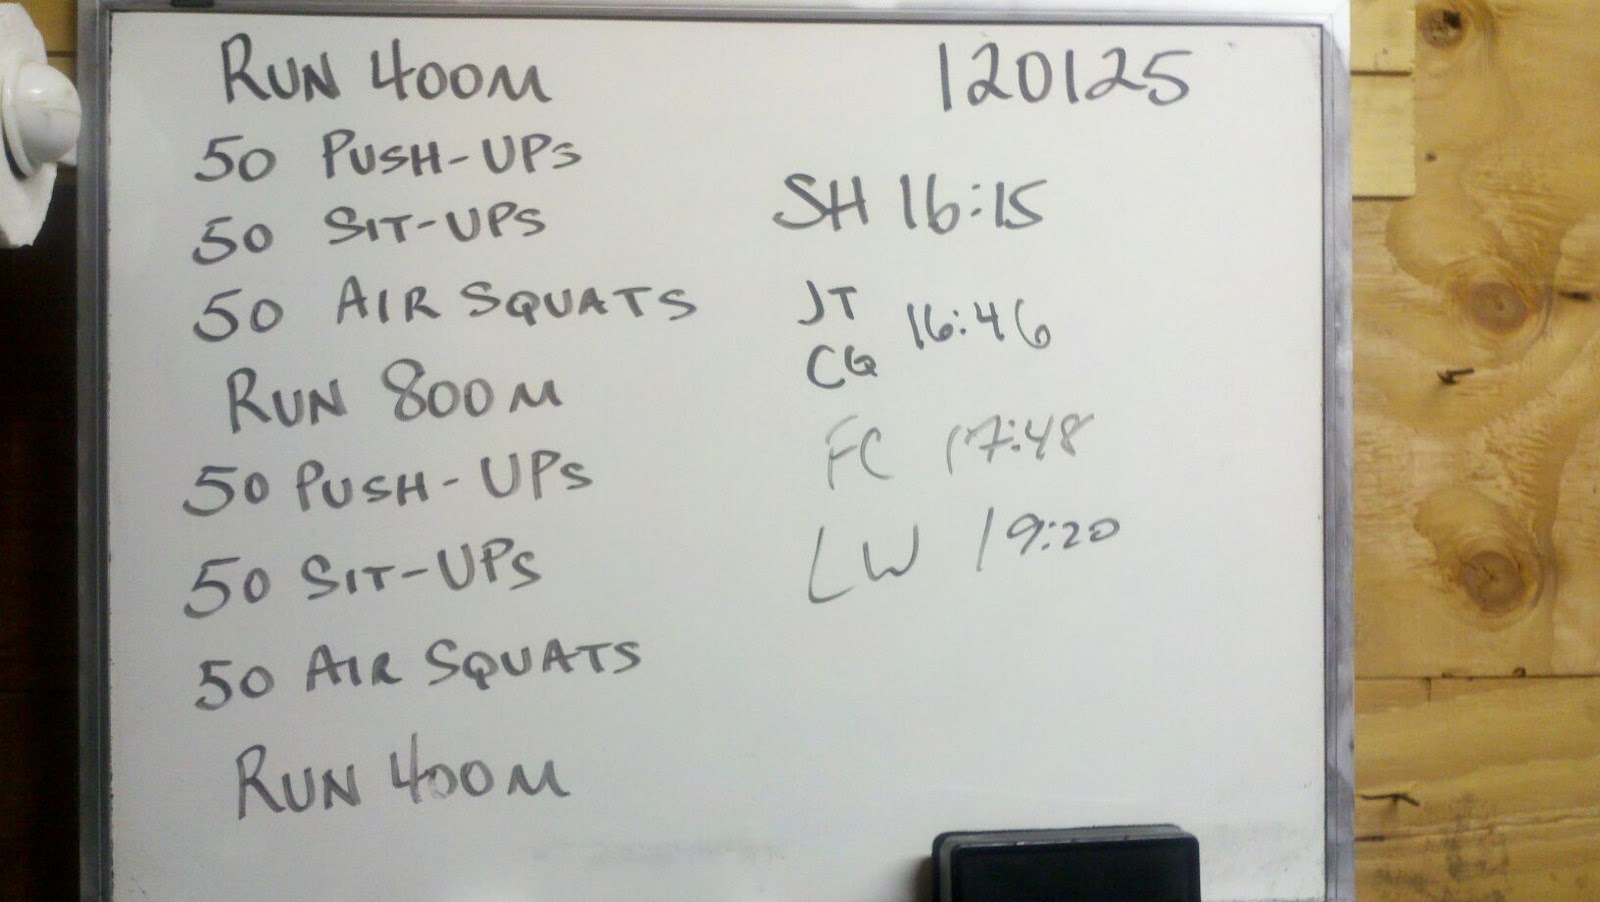 RUN 400M
50 PUSH-UPS
50 SIT-UPS
50 AIR SQUATS
RUN 800M
50 PUSH-UPS
50 SIT-UPS
50 AIR SQUATS
RUN 400M
120125
SH 16:15
JT
CG 16:46
FC 17:48
LW 19:20